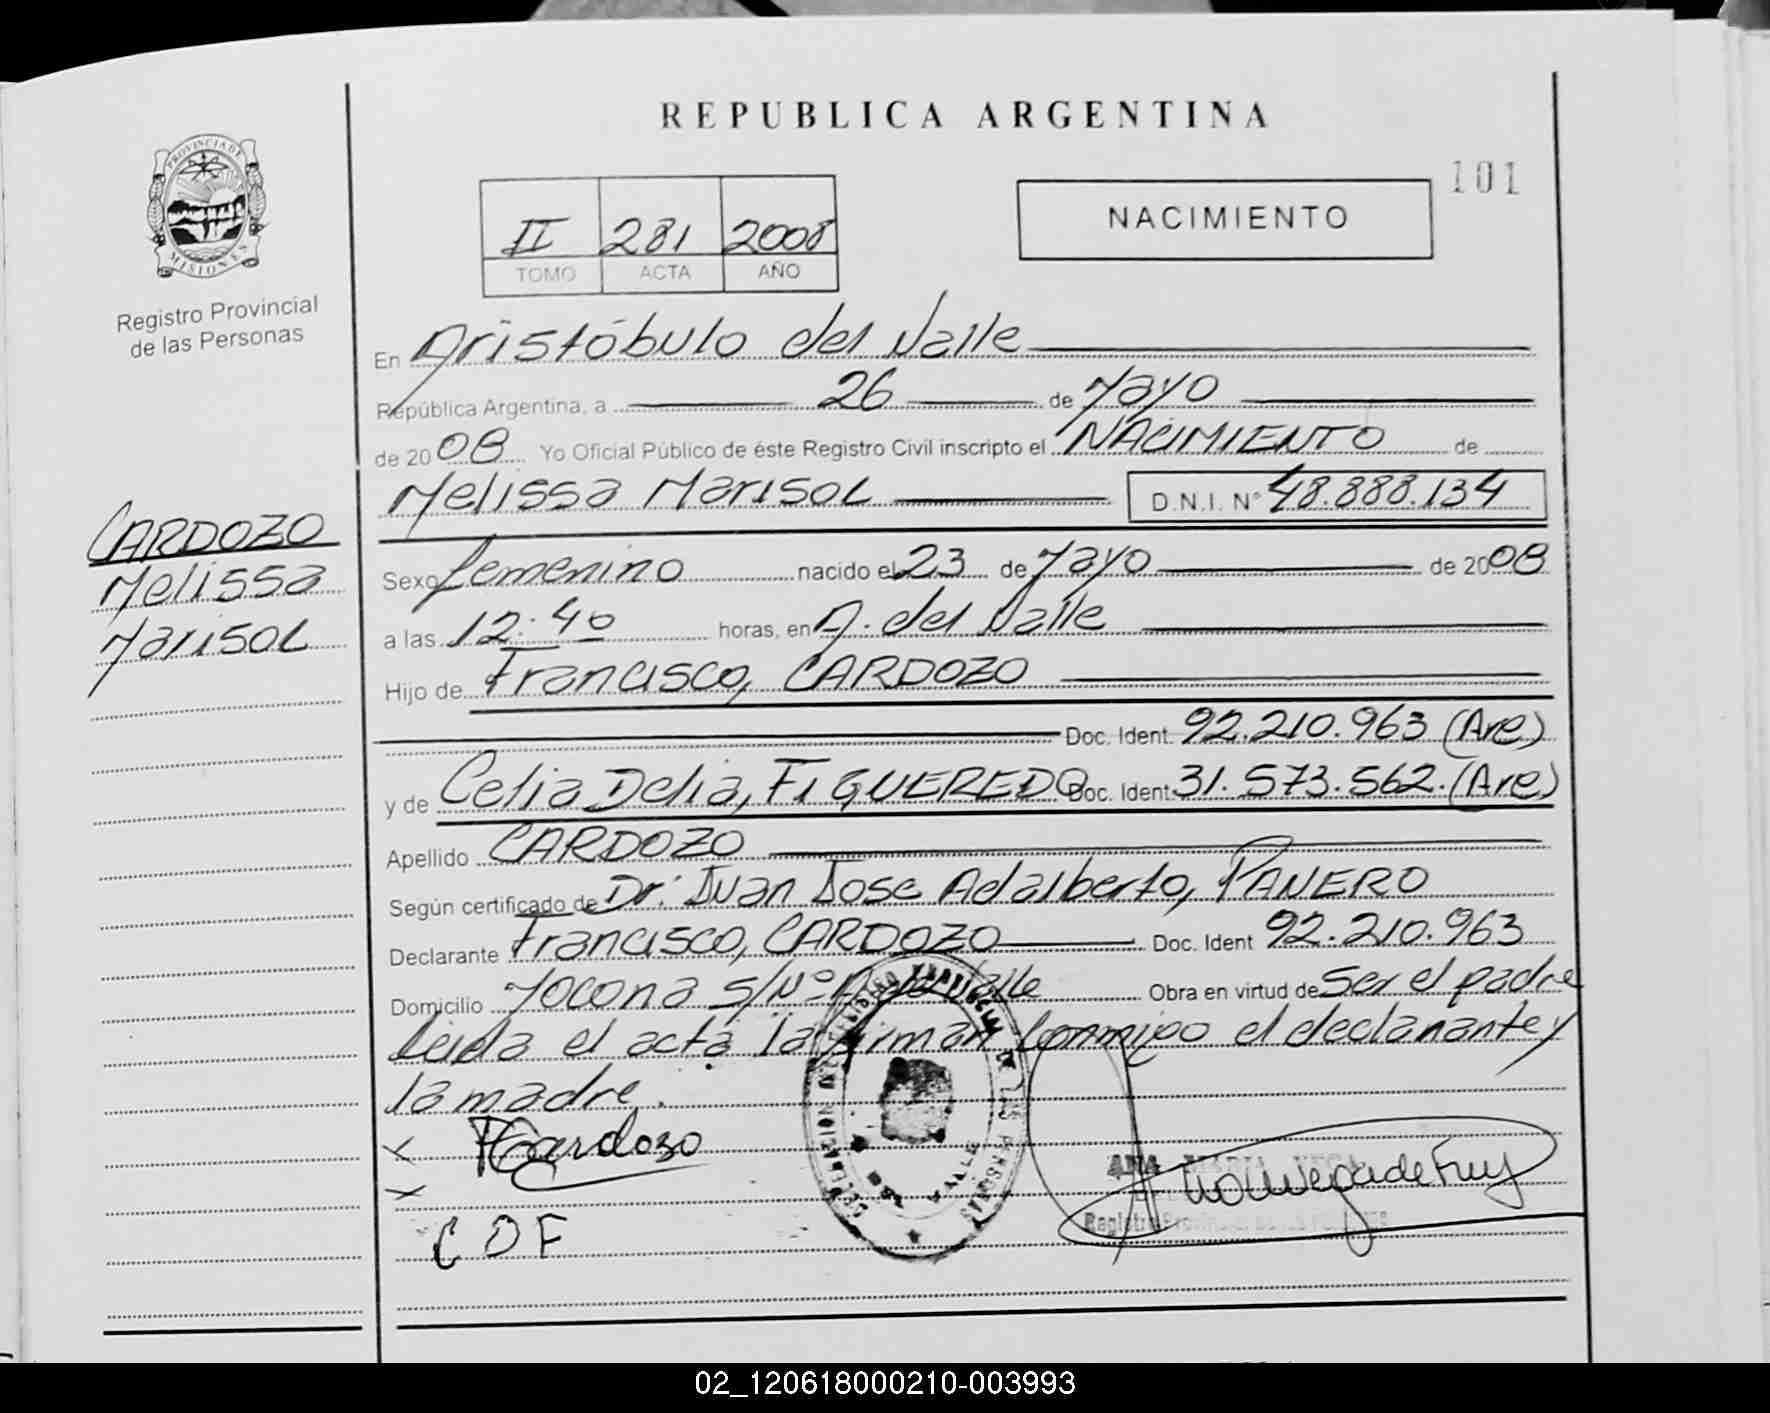 REPUBLICA ARGENTINA
101
PROVINCIA DE
MISIONES
Registro Provincial
de las Personas
II 281 2008
TOMO ACTA AÑO
NACIMIENTO
En Aristóbulo del Valle
República Argentina, a 26 de Mayo
de 2008 Yo Oficial Público de éste Registro Civil inscripto el NACIMIENTO de
Melissa Marisol D.N.I. Nº 48.888.134
CARDOZO
Melissa
Marisol
Sexo femenino nacido el 23 de Mayo de 2008
a las 12:40 horas, en A. del Valle
Hijo de Francisco, CARDOZO
Doc. Ident. 92.210.963 (Are)
y de Celia Delia, FIGUEREDO Doc. Ident. 31.573.562. (Are)
Apellido CARDOZO
Según certificado de Dr: Juan Jose Adalberto, PANERO
Declarante Francisco, CARDOZO Doc. Ident 92.210.963
Domicilio Mocona S/Nº A. del Valle Obra en virtud de Ser el padre
Leida el acta la firman Conmigo el declarante y
la madre.
FCardozo
CDF
ANA MARIA VEGA
Registro Provincial de las Personas
02_120618000210-003993